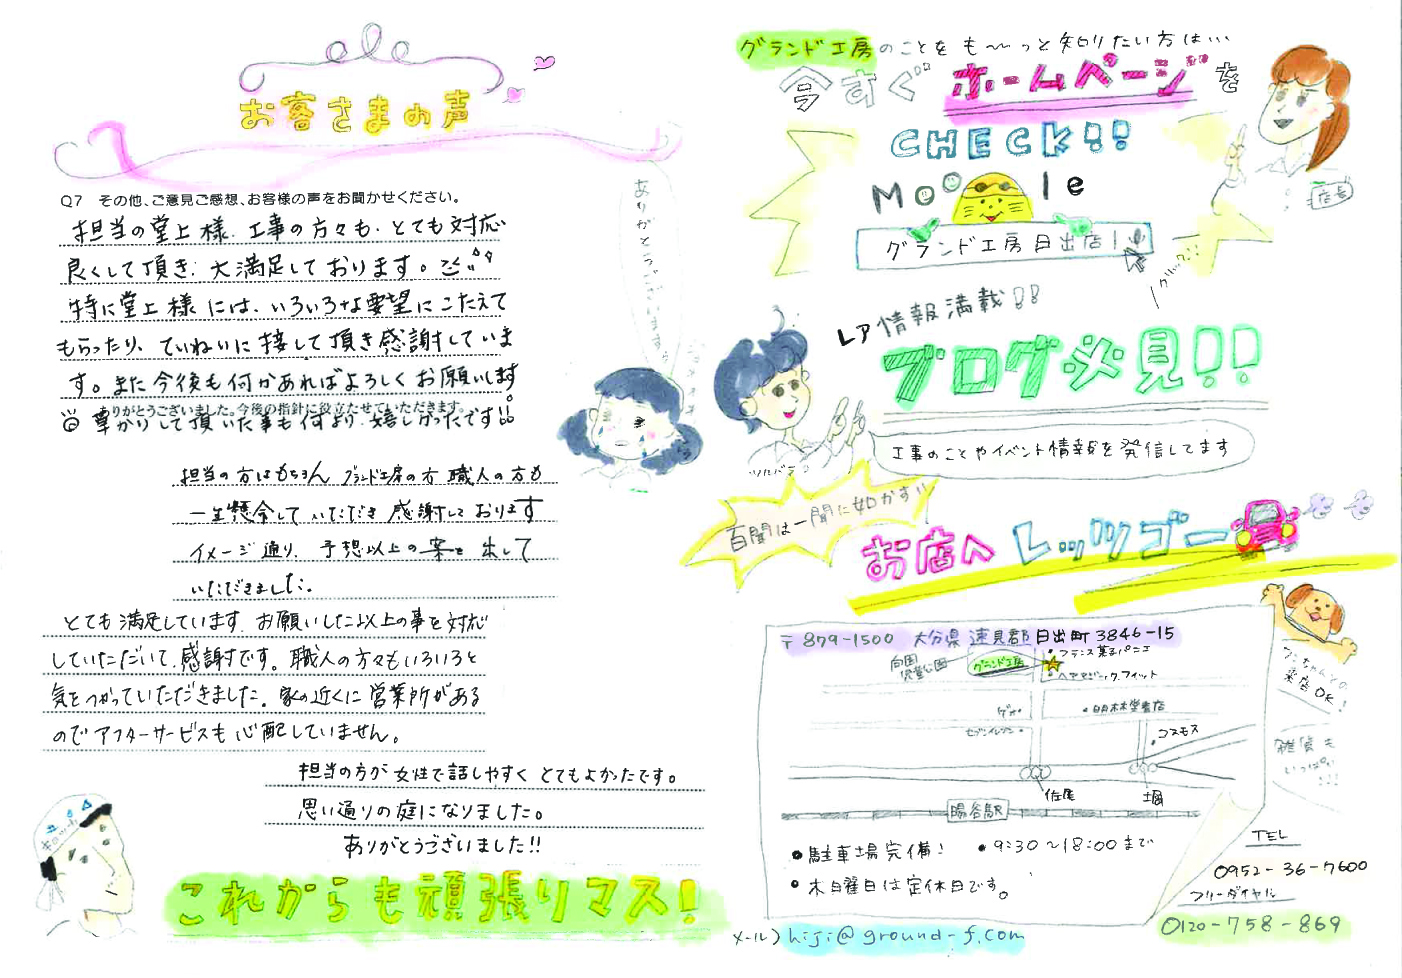 お客さまの声
Q7 その他、ご意見ご感想、お客様の声をお聞かせください。
担当の堂上様、工事の方々も、とても対応
良くして頂き、大満足しております。
特に堂上様には、いろいろな要望にこたえて
もらったり、ていねいに接して頂き感謝していま
す。また今後も何かあればよろしくお願いします。
ありがとうございました。今後の指針に役立たせていただきます。
草かりして頂いた事も何より嬉しかったです!!
ありがとうございます
担当の方はもちろん グランド工房の方 職人の方も
一生懸命して いただき 感謝して おります
イメージ通り、予想以上の案を出して
いただきました。
とても満足しています。お願いした以上の事を対応
していただいて、感謝です。職人の方々もいろいろと
気をつかっていただきました。家の近くに営業所がある
のでアフターサービスも心配していません。
担当の方が女性で話しやすく とてもよかったです。
思い通りの庭になりました。
ありがとうございました!!
これからも頑張りマス!
グランド工房のことをも〜〜っと知りたい方は…
今すぐホームページを
CHECK!!
店長
Moo le
グランド工房日出店
レア情報満載!!
ブログ必見!!
工事のことやイベント情報を発信してます
百聞は一聞に如かず!!
お店へレッツゴー
〒879-1500 大分県 速見郡 日出町 3846-15
グランド工房
・フランス菓子パニエ
・ヘアマジック.フィット
・明林堂書店
セブンイレブン
・コスモス
佐尾
堀
陽谷駅
ワンちゃんとの
来店OK!
雑貨も
いっぱい
・駐車場完備!
・9:30〜18:00まで
・木曜日は定休日です。
TEL
0952-36-7600
フリーダイヤル
0120-758-869
メール) hiji@ground-f.com